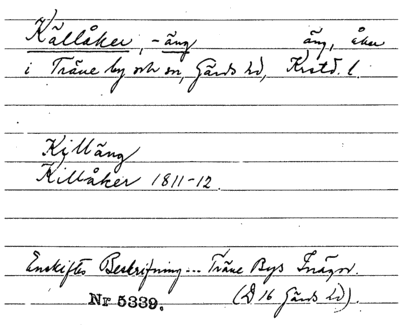 Källåker, -äng äng, åker
i Träne by och sn, Gärds hd, Krstd. l.
Killäng
Killåker 1811-12.
Enskiftes Beskrifning... Träne Bys Inägor.
Nr 5339. (D 16 Gärds hd).